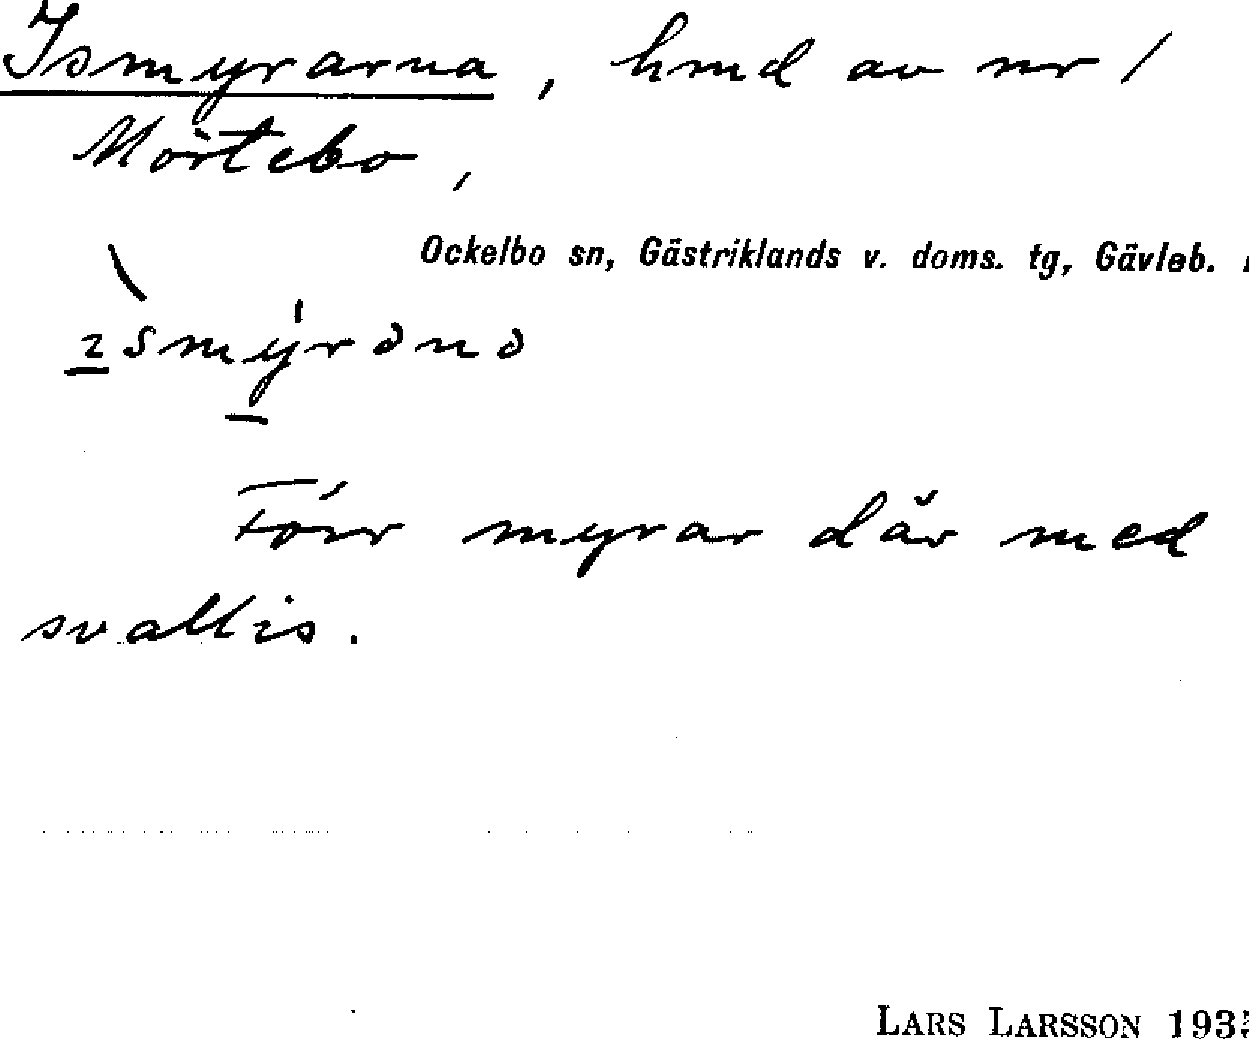 Ismyrarna, hmd av nr 1
Mörtebo,
Ockelbo sn, Gästriklands v. doms. tg, Gävleb.
Förr myrar där med
svallis.
LARS LARSSON 193